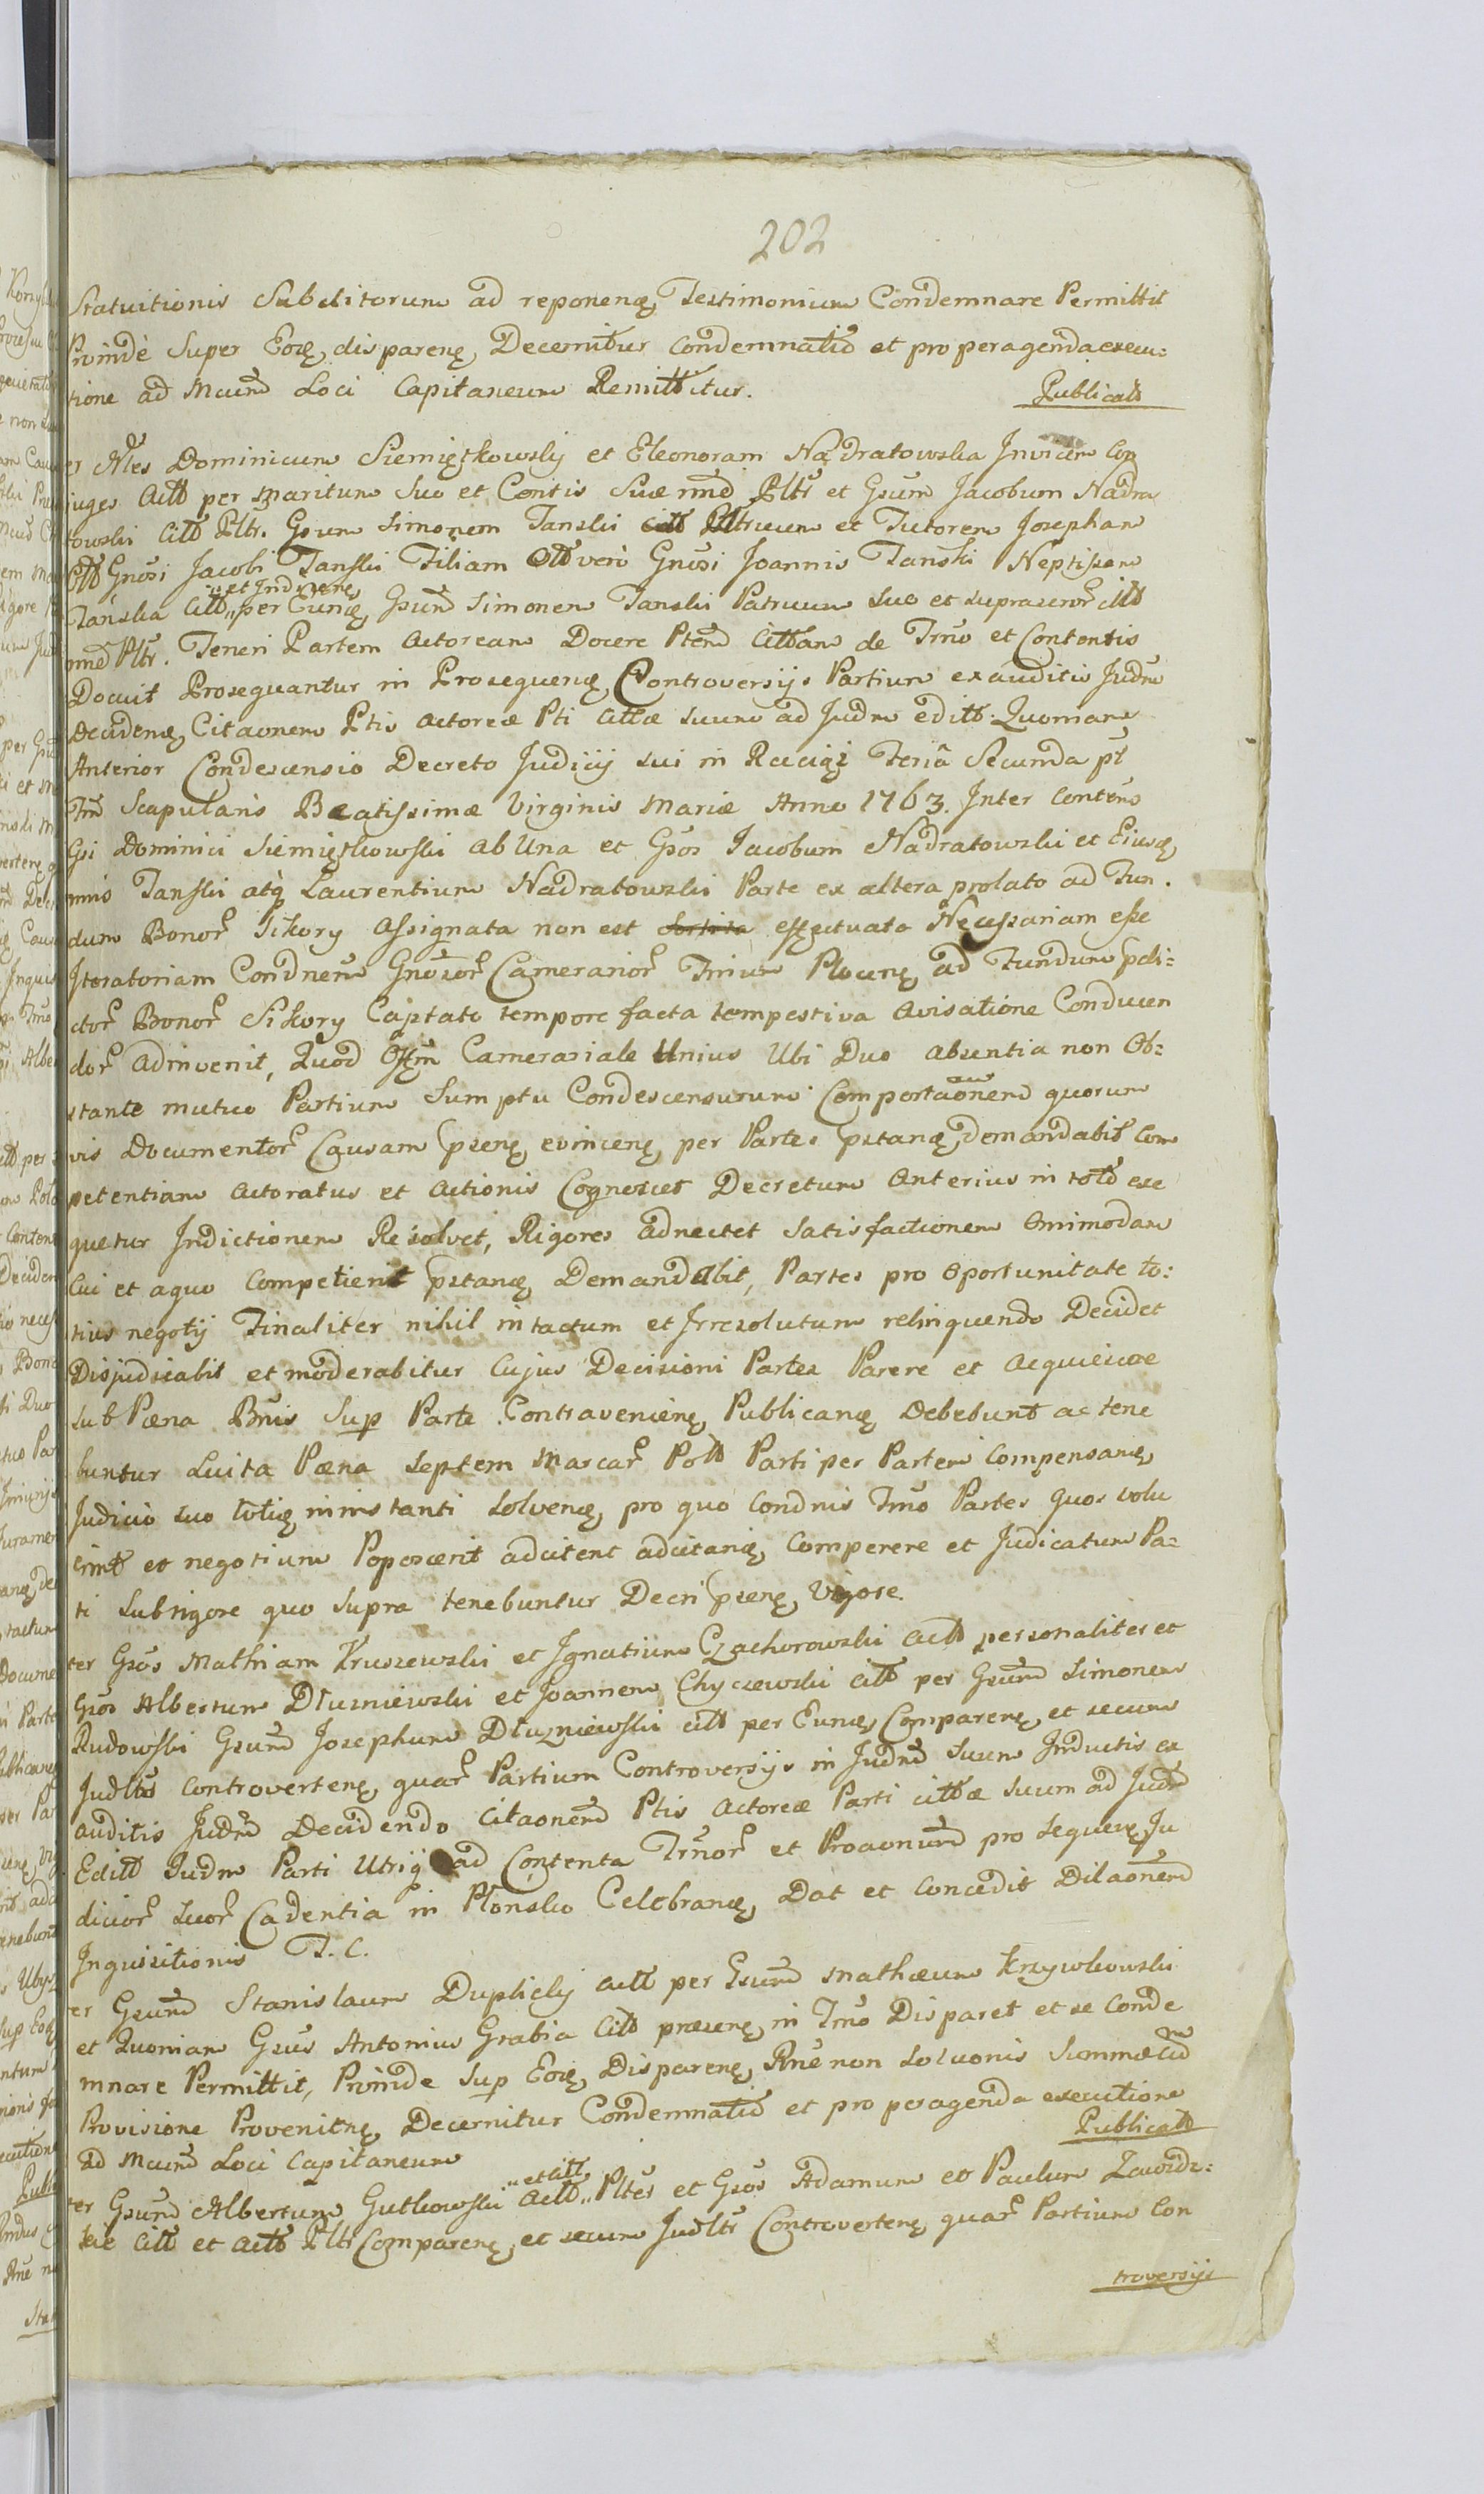 202
Statuitionis Subditorum ad reponenę Testimonium Condemnare Permittit
Proindè Super Eorę disparenę Decernitur Condemnatio et pro peragenda execu:
tione ad Mcum Loci Capitaneum Remittitur. Publicatt
er Nles Dominicum Siemiętkowsky et Eleonoram Nadratowska Invicem Con
juges Actt per Maritum Suo et Contis Suæ nmē Pltr et Gsum Jacobum Nadra
towski Citt Pltr. Gsum Simonem Tanski Patruum et Tutorem Josepham
Gnosi Jacobi Tanski Filiam Ott verò Gnosi Joannis Tanski Neptissam
Tanska Citt " et Indivenę
per Eunę Gsum Simonem Tanski Patruum Suo et supraScror Citt
nmē Pltr. Teneri Partem Actoream Docere Ptem Cittam de Trno et Contentis
Docuit Prosequantur in Prosequenę Controversijs Partium exauditis Judm
Decidenę Citaonem Ptis Actoreæ Pti Cittæ suum ad Judm editt. Quoniam
Anterior Condescensio Decreto Judicij sui in Raciąż Feria Secunda pt
Ftm Scapularis Beatissimæ Virginis Mariæ Anno 1763. Inter Contens
Gsi Dominici Siemiętkowski ab Una et Gsos Jacobum Nadratowski et Eiusę
mnis Tanski atq Laurentium Nadratowski Parte ex altera prolato ad Fun.
dum Bonor Sikory Assignata non est effectuata Necessariam esse
Iteratoriam Condnem Gnosor Camerarior Trium Plocenę ad Fundum pdi:
ctor Bonor Sikory Captato tempore facta tempestiva Avisatione Conducen
dor adinvenit, Quod Offm Camerariale Unius Ubi Duo absentia non Ob:
stante mutuo Partium Sumptu Condescensurum Comportaonem quorum
vis Documentor Causam psenę evincenę per Partes pstanę demandabit Com
petentiam Actoratus et Actionis Cognoscet Decretum Anterius in toto exe
quetur Indictionem Resolvet, Rigores adnectet Satisfactionem Omnimodam
Cui et aquo Competierit pstanę Demandabit, Partes pro Oportunitate to:
tius negotij Finaliter nihil intactum et Irresolutum relinquendo Decidet
Disjudicabit et moderabitur Cujus Decisioni Partes Parere et Acquiescere
sub Pæna Bnis Sup Parte Contravenienę Publicanę Debebunt ac tene
buntur Luita Pæna Septem Marcar Poltt Parti per Partem Compensanę
Judicio suo totię ninstanti Solvenę, pro quo Condnis Trno Partes quos volu
erint et negotium Poposcerit adcitent adcitanę Comperere et Judicatum Pa:
ti Subrigore quo Supra tenebuntur Decri psenę Vigore.
ter Gsos Mathiam Kruszewski et Ignatium Czachorowski Actt personaliter et
Gsos Albertum Dłuzniewski et Joannem Chyczewski Citt per Gsum Simonem
Rudowski Gsum Josephum Dłuzniewski Citt per Eunę Comparenę et secum
Judltr Controvertenę quar Partium Controversijs in Judm Suum Inductis ex
auditis Judm Decidendo Citaonem Ptis Actoreæ Parti Cittæ Suum ad Judm
Editt Judm Parti Utriq ad Contenta Trnor et Proaonum pro sequenę Ju
dicior suor Cadentia in Plonsko Celebranę Dat et Concedit Dilaonem
Inquisitionis T. C.
er Gsum Stanislaum Duplicky Actt per Gsum Mathæum Krzywkowski
et Quoniam Gsus Antonius Grabia Citt præsenę in Trno Disparet et se Conde
mnare Permittit, Proinde Sup Eorę Disparenę Rne non Soluonis Summæ cum
Provisione Provenitnę Decernitur Condemnatio et pro peragenda executione
ad Mcum Loci Capitaneum Publicatt
ter Gsum Albertum Gutkowski Actt " et Citt " Pltes et Gsos Adamum et Paulum Zawidz:
kie Citt et Actt Pltr Comparenę et secum Judltr Controvertenę quar Partium Con
troversijs